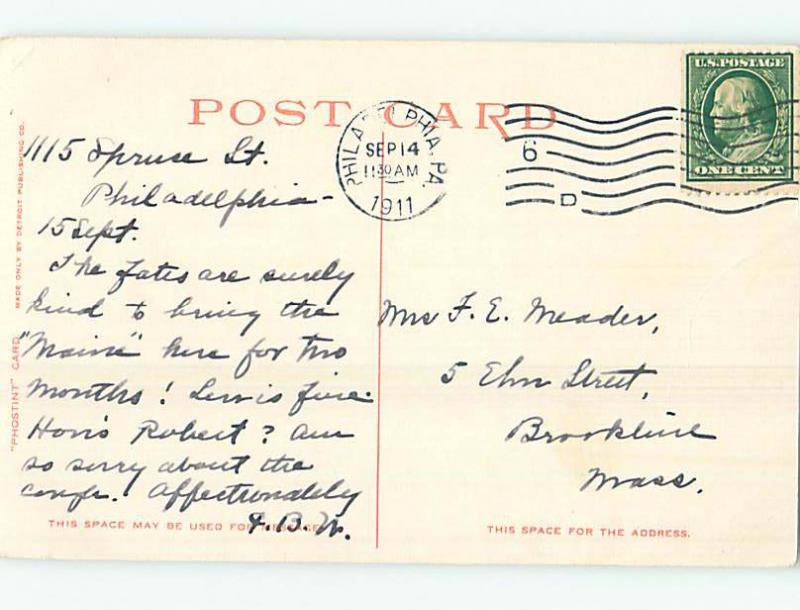 POST CARD
U.S.POSTAGE
ONE CENT
PHILADELPHIA, PA.
SEP 14
11 30 AM
1911
6
D
MADE ONLY BY DETROIT PUBLISHING CO.
"PHOSTINT" CARD
1115 Spruce St.
Philadelphia-
15 Sept.
The fates are surely
kind to bring the
"Maine" here for two
months! Lewis fine.
How's Robert? am
so sorry about the
cough. Affectionately
B. W.
Mrs F. E. Meader,
5 Elm Street,
Brookline
Mass.
THIS SPACE MAY BE USED FOR MESSAGE
THIS SPACE FOR THE ADDRESS.